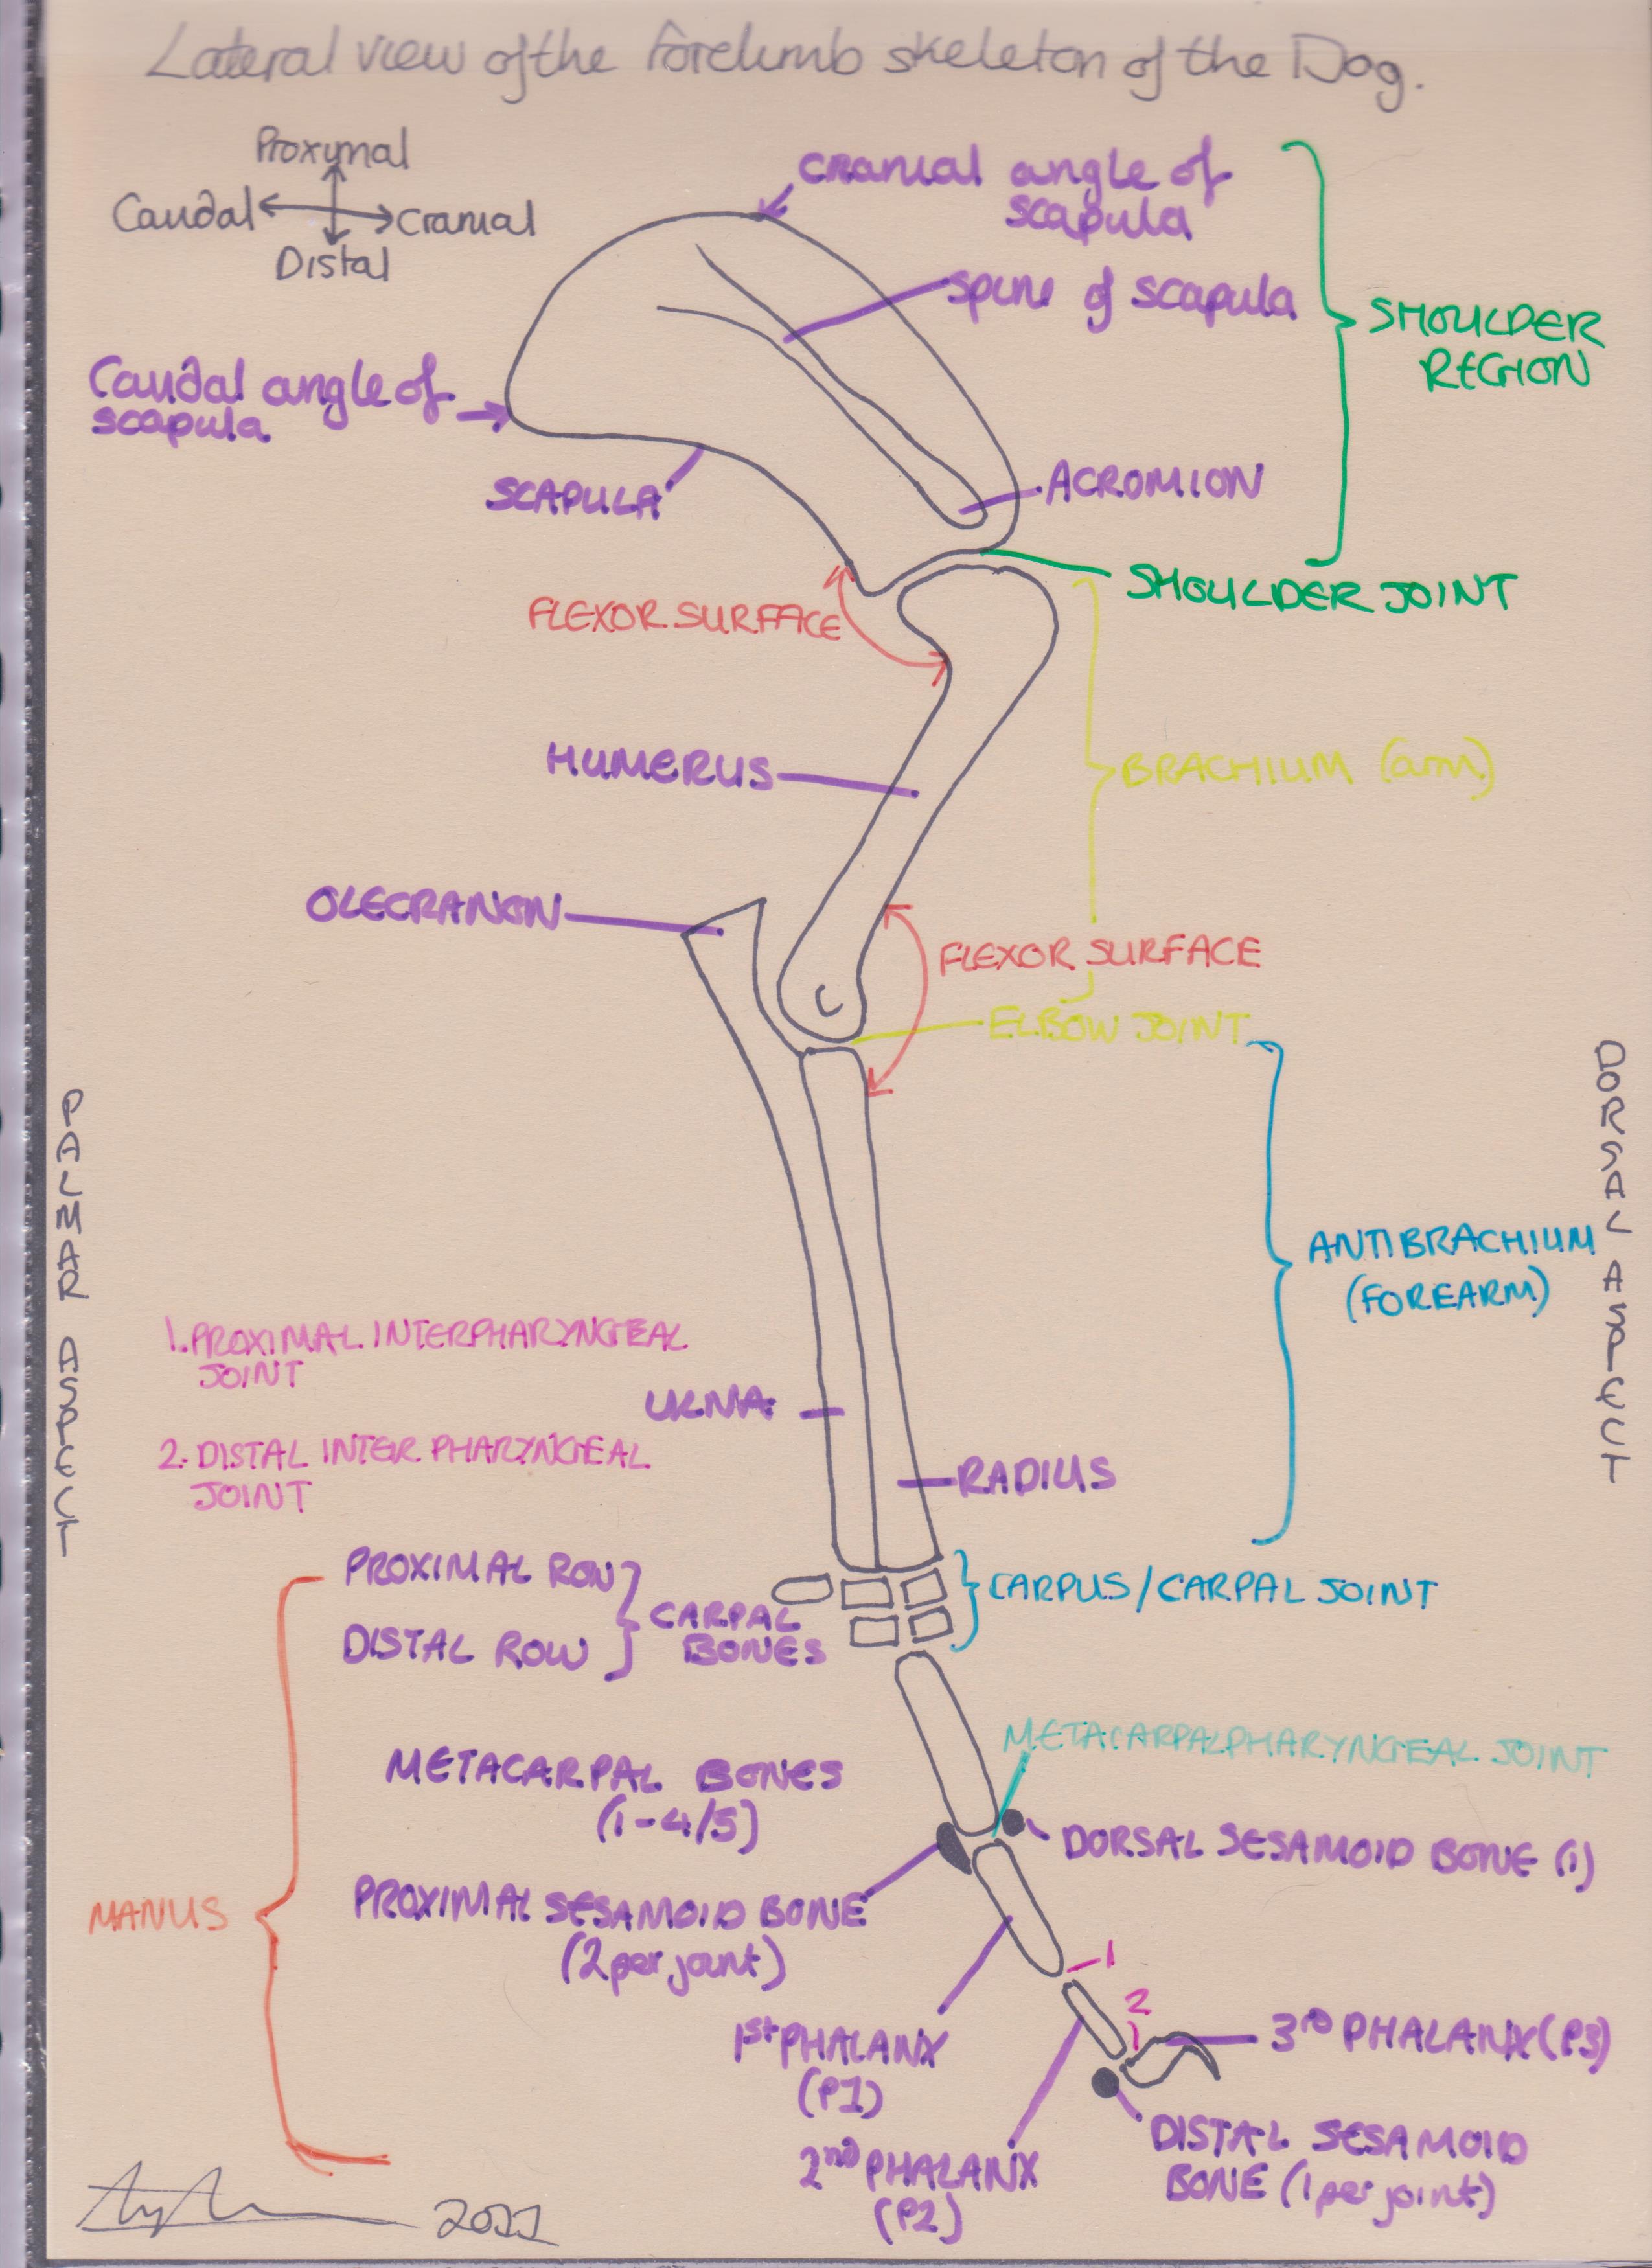 Lateral view of the forelimb skeleton of the Dog.
Proximal
Caudal
Cranial
Distal
Cranial angle of
scapula
spine of scapula
SHOULDER
REGION
Caudal angle of
scapula
SCAPULA
ACROMION
SHOULDER JOINT
FLEXOR SURFACE
HUMERUS
BRACHIUM (arm)
OLECRANON
FLEXOR SURFACE
ELBOW JOINT
PALMAR ASPECT
DORSAL ASPECT
ANTIBRACHIUM
(FOREARM)
1. PROXIMAL INTERPHARYNGEAL
JOINT
ULNA
2. DISTAL INTERPHARYNGEAL
JOINT
RADIUS
PROXIMAL ROW
DISTAL ROW
CARPAL
BONES
CARPUS/CARPAL JOINT
METACARPALPHARYNGEAL JOINT
METACARPAL BONES
(1-4/5)
DORSAL SESAMOID BONE (1)
PROXIMAL SESAMOID BONE
(2 per joint)
MANUS
1
2
1st PHALANX
(P1)
3rd PHALANX (P3)
2nd PHALANX
(P2)
DISTAL SESAMOID
BONE (1 per joint)